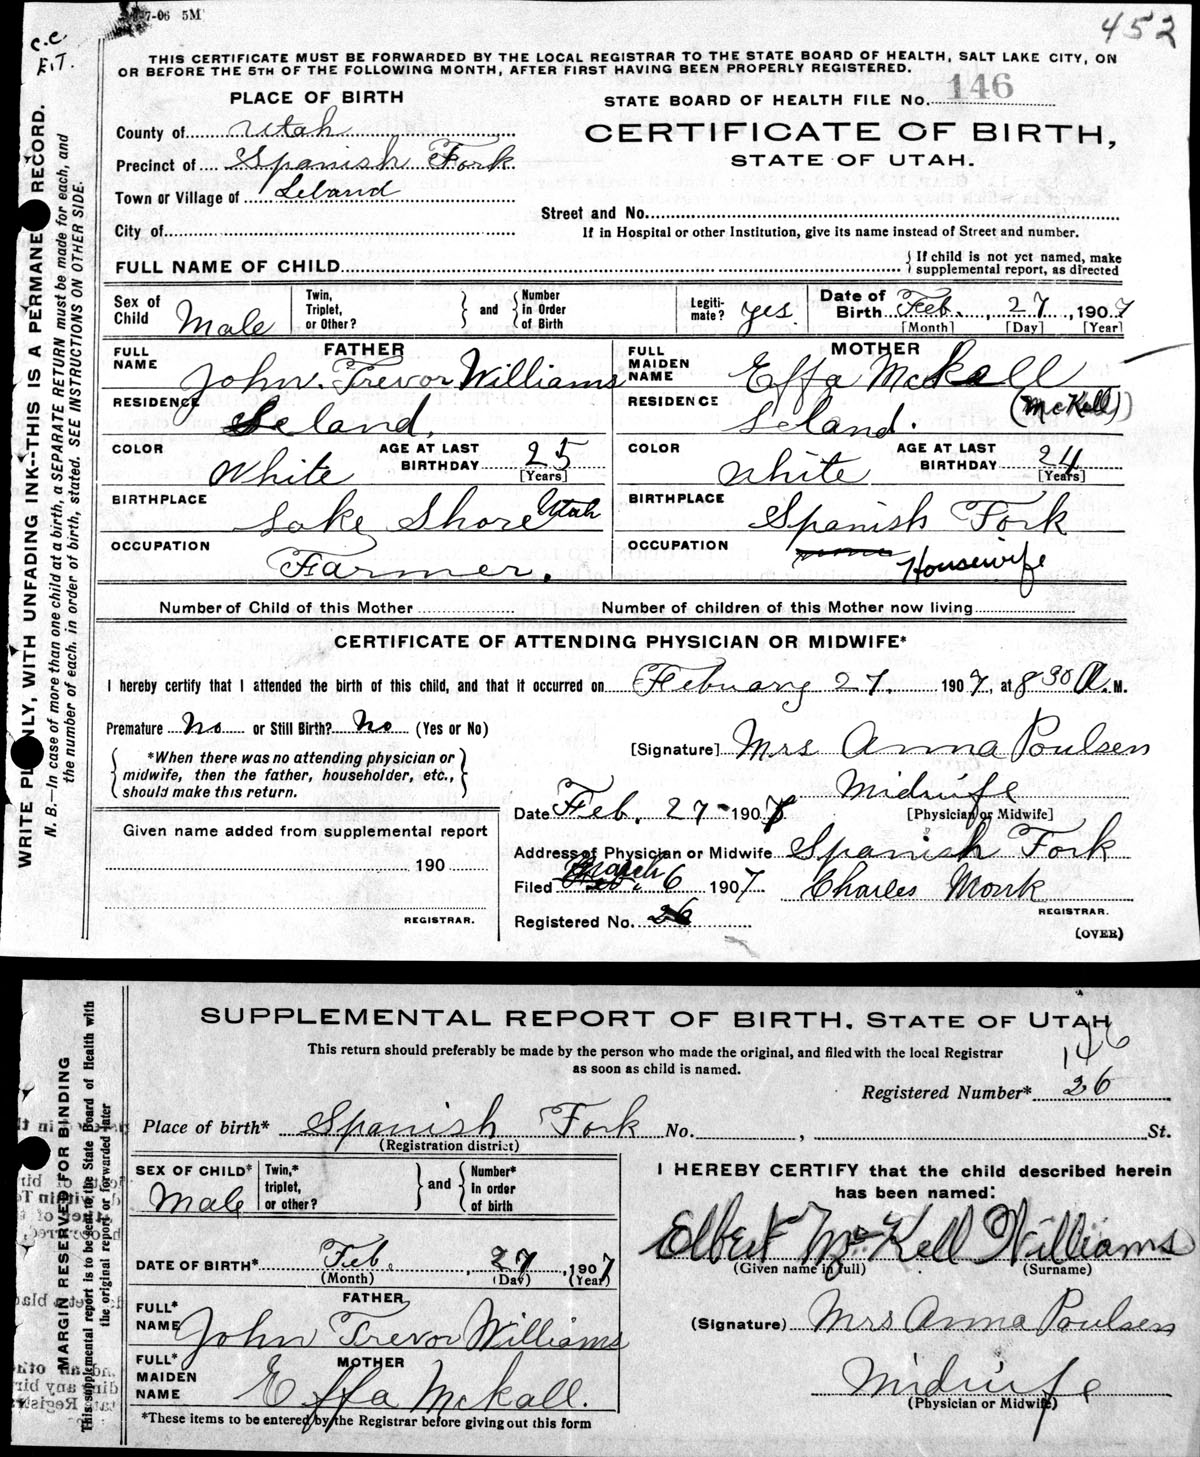 7-06 5M
452
C.C.
E.T.
THIS CERTIFICATE MUST BE FORWARDED BY THE LOCAL REGISTRAR TO THE STATE BOARD OF HEALTH, SALT LAKE CITY, ON
OR BEFORE THE 5TH OF THE FOLLOWING MONTH, AFTER FIRST HAVING BEEN PROPERLY REGISTERED.
PLACE OF BIRTH
STATE BOARD OF HEALTH FILE No. 146
County of Utah
CERTIFICATE OF BIRTH,
Precinct of Spanish Fork
STATE OF UTAH.
Town or Village of Leland
Street and No.
City of
If in Hospital or other Institution, give its name instead of Street and number.
FULL NAME OF CHILD
{ If child is not yet named, make
supplemental report, as directed
Sex of Child Male
Twin, Triplet, or Other? } and { Number in Order of Birth
Legiti-mate? yes.
Date of Birth Feb. , 27 , 1907
[Month] [Day] [Year]
FATHER
FULL NAME John Trevor Williams
RESIDENCE Leland.
COLOR White
AGE AT LAST BIRTHDAY 25
[Years]
BIRTHPLACE Lake Shore Utah
OCCUPATION Farmer.
MOTHER
FULL MAIDEN NAME Effa McKall
(McKell)
RESIDENCE Leland.
COLOR White
AGE AT LAST BIRTHDAY 24
[Years]
BIRTHPLACE Spanish Fork
OCCUPATION Housewife
Number of Child of this Mother
Number of children of this Mother now living
CERTIFICATE OF ATTENDING PHYSICIAN OR MIDWIFE*
I hereby certify that I attended the birth of this child, and that it occurred on Febuary 27. 1907, at 8 30 A. M.
Premature No or Still Birth? No (Yes or No)
[Signature] Mrs Anna Poulsen
{ *When there was no attending physician or
midwife, then the father, householder, etc.,
should make this return. }
Midwife
Date Feb. 27- 1907
[Physician or Midwife]
Given name added from supplemental report
190
REGISTRAR.
Address of Physician or Midwife Spanish Fork
Filed March 6 1907 Charles Monk
REGISTRAR.
Registered No. 26
(OVER)
WRITE PL NLY, WITH UNFADING INK--THIS IS A PERMANE RECORD.
N. B.—In case of more than one child at a birth, a SEPARATE RETURN must be made for each, and
the number of each, in order of birth, stated. SEE INSTRUCTIONS ON OTHER SIDE.
SUPPLEMENTAL REPORT OF BIRTH, STATE OF UTAH
This return should preferably be made by the person who made the original, and filed with the local Registrar
as soon as child is named.
146
Registered Number* 26
Place of birth* Spanish Fork No. , St.
(Registration district)
SEX OF CHILD* Male
Twin,* triplet, or other? } and { Number* In order of birth
I HEREBY CERTIFY that the child described herein
has been named:
Elbert McKell Williams
(Given name in full) (Surname)
DATE OF BIRTH* Feb. , 27 , 1907
(Month) (Day) (Year)
FATHER
FULL* NAME John Trevor Williams
(Signature) Mrs Anna Poulsen
MOTHER
FULL* MAIDEN NAME Effa McKall.
Midwife
(Physician or Midwife)
*These items to be entered by the Registrar before giving out this form
MARGIN RESERVED FOR BINDING
This supplemental report is to be sent to the State Board of Health with
the original report or forwarded later